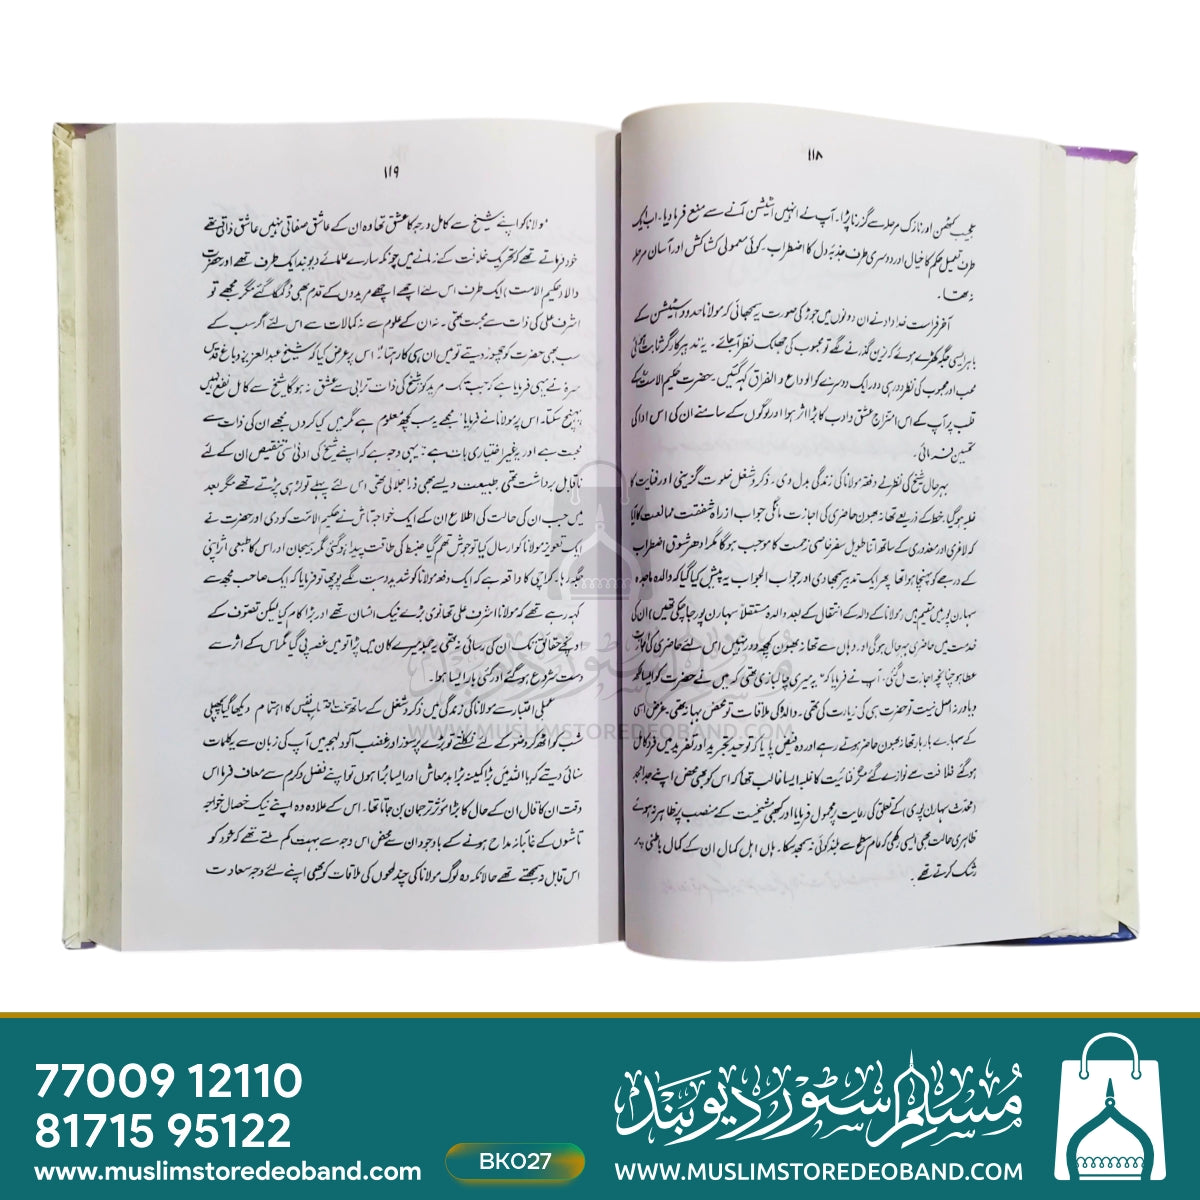 ۱۱۸
عجیب کٹھن اور نازک مرحلہ سے گزرنا پڑا۔ آپ نے انہیں اسٹیشن آنے سے منع فرما دیا۔ اب ایک
طرف تعمیل حکم کا خیال اور دوسری طرف جذبۂ دل کا اضطراب۔ کوئی معمولی کشاکش اور آسان مرحلہ
نہ تھا۔
آخر فراست خداداد نے ان دونوں میں جوڑ کی صورت یہ سمجھائی کہ مولانا حدود اسٹیشن کے
باہر ایسی جگہ کھڑے ہوئے کہ ٹرین گذرنے لگے تو محبوب کی جھلک نظر آجائے۔ یہ تدبیر کارگر ثابت ہوئی
محب اور محبوب کی نظر دور ہی دور ایک دوسرے کو الوداع و الفراق کہہ گئیں۔ حضرت حکیم الامت کے
قلب پر آپ کے اس امتزاج عشق و ادب کا بڑا اثر ہوا اور لوگوں کے سامنے ان کی اس ادا کی
تحسین فرمائی۔
بہر حال شیخ کی نظر نے دفعۃ مولانا کی زندگی بدل دی۔ ذکر و شغل خلوت گزینی اور فنایت کا
غلبہ ہو گیا۔ خط کے ذریعے تھانہ بھون حاضری کی اجازت مانگی جواب از راہ شفقت ممالعت کا آیا
کہ لاغری اور معذوری کے ساتھ اتنا طویل سفر خاصی زحمت کا موجب ہوگا مگر ادھر شوق اضطراب
کے درجے کو پہنچا ہوا تھا پھر ایک تدبیر سمجھا دی اور جواب الجواب یہ پیش کیا گیا کہ والدہ ماجدہ
سہارن پور میں مقیم ہیں (مولانا کے والد کے انتقال کے بعد والدہ مستقلاً سہارن پور جا چکی تھیں) ان کی
خدمت میں حاضری بہر حال ہوگی اور وہاں سے تھانہ بھون کچھ دور نہیں اس لئے حاضری کی اجازت
عطا ہو چنانچہ اجازت مل گئی۔ آپ نے فرمایا کہ "یہ میری چالبازی تھی کہ میں نے حضرت کو ایسا لکھ
دیا ورنہ اصل نیت تو حضرت ہی کی زیارت کی تھی۔ والدہ کی ملاقات تو محض بہانہ تھی۔ غرض اسی
کے سہارے بار بار تھانہ بھون حاضر ہوتے رہے اور وہ فیض پایا کہ توحید تجرید اور تفرید میں فرد کامل
ہو گئے خلافت سے نوازے گئے مگر فنائیت کا غلبہ ایسا غالب تھا کہ اس کو بھی محض اپنے جد امجد
(محدث سہارن پوری) کے تعلق کی رعایت پر محمول فرمایا اور کبھی مشخیت کے منصب پر ظاہر نہ ہوئے
ظاہری حالت بھی ایسی رکھی کہ عام سطح سے بلند کوئی نہ سمجھ سکا۔ ہاں اہل کمال ان کے کمال باطنی پر
رشک کرتے تھے۔
۱۱۹
مولانا کو اپنے شیخ سے کامل درجہ کا عشق تھا وہ ان کے عاشق صفاتی نہیں عاشق ذاتی تھے
خود فرماتے تھے کہ تحریک خلافت کے زمانے میں چونکہ سارے علمائے دیوبند ایک طرف تھے اور حضرت
والا (حکیم الامت) ایک طرف اس لئے اچھے اچھے مریدوں کے قدم بھی ڈگمگا گئے مگر مجھے تو
اشرف علی کی ذات سے محبت تھی۔ نہ ان کے علوم سے نہ کمالات سے اس لئے اگر سب کے
سب بھی حضرت کو چھوڑ دیتے تو میں ان ہی کا رہتا" اس پر عرض کیا کہ شیخ عبدالعزیز دباغ قدس
سرہٗ نے یہی فرمایا ہے کہ جب تک مرید کو شیخ کی ذات ترابی سے عشق نہ ہوگا شیخ سے کامل نفع نہیں
پہنچ سکتا۔ اس پر مولانا نے فرمایا "مجھے یہ سب کچھ معلوم ہے مگر میں کیا کروں مجھے ان کی ذات سے
محبت ہے اور یہ غیر اختیاری بات ہے"۔ یہی وجہ ہے کہ اپنے شیخ کی ادنیٰ سی تنقیص ان کے لئے
ناقابل برداشت تھی طبیعت ویسے بھی ذرا جلالی تھی اس لئے پہلے تو لڑ ہی پڑتے تھے مگر بعد
میں جب ان کی حالت کی اطلاع ان کے ایک خواجہ تاش نے حکیم الامت کو دی اور حضرت نے
ایک تعویذ مولانا کو ارسال کیا تو جوش تھم گیا ضبط کی طاقت پیدا ہو گئی مگر ہیجان اور اس کا طبعی اثر اپنی
جگہ رہا۔ کراچی کا واقعہ ہے کہ ایک دفعہ مولانا کو شدید دست لگے پوچھا تو فرمایا کہ ایک صاحب مجھ سے
کہہ رہے تھے کہ مولانا اشرف علی تھانوی بڑے نیک انسان تھے اور بڑا کام کیا لیکن تصوف کے
اونچے حقائق تک ان کی رسائی نہ تھی یہ جملہ میرے کان میں پڑا تو میں غصہ پی گیا مگر اس کے اثر سے
دست شروع ہو گئے اور کئی بار ایسا ہوا۔
عملی اعتبار سے مولانا کی زندگی میں ذکر و شغل کے ساتھ سخت احتساب نفس کا اہتمام دیکھا گیا پچھلی
شب کو اٹھ کر وضو کے لئے نکلتے تو بڑے پرسوز اور غضب آلود لہجہ میں آپ کی زبان سے یہ کلمات
سنائی دیتے کہ یا اللہ میں بڑا کمینہ بڑا بدمعاش اور ایسا بڑا ہوں تو اپنے فضل و کرم سے معاف فرما اس
وقت ان کا قال ان کے حال کا بڑا مؤثر ترجمان بن جاتا تھا۔ اس کے علاوہ وہ اپنے نیک خصال خواجہ
تاشوں کے غائبانہ مداح ہونے کے باوجود ان سے محض اس وجہ سے بہت کم ملتے تھے کہ خود کو
اس قابل نہ سمجھتے تھے حالانکہ وہ لوگ مولانا کی چند لمحوں کی ملاقات کو بھی اپنے لئے وجہ سعادت
مسلم سٹور دیوبند
WWW.MUSLIMSTOREDEOBAND.COM
77009 12110
81715 95122
www.muslimstoredeoband.com
BK027
مسلم سٹور دیوبند
WWW.MUSLIMSTOREDEOBAND.COM